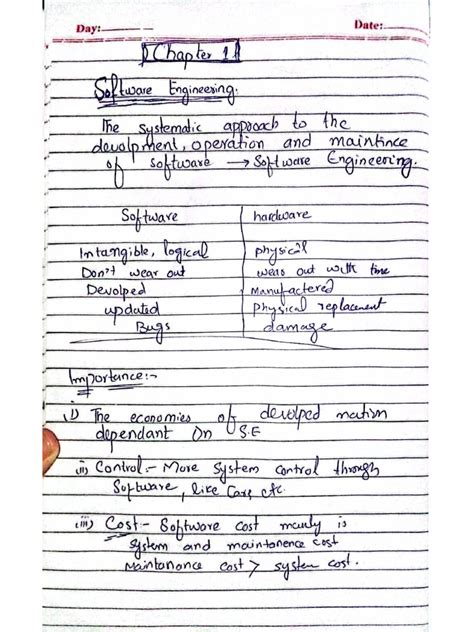 Day:
Date:
Chapter 1
Software Engineering.
The systematic approach to the
devolpment, operation and maintince
of software → Software Engineering.
Software hardware
Intangible, logical physical
Don't wear out wears out with time
Devolped Manufactered
updated Physical replacement
Bugs damage
Importance:-
i) The economies of devolped nation
dependant On S.E
ii) Control:- More System control through
Software, like Cars, etc.
iii) Cost:- Software cost mainly is
System and maintonence cost
Maintonance cost > system cost.